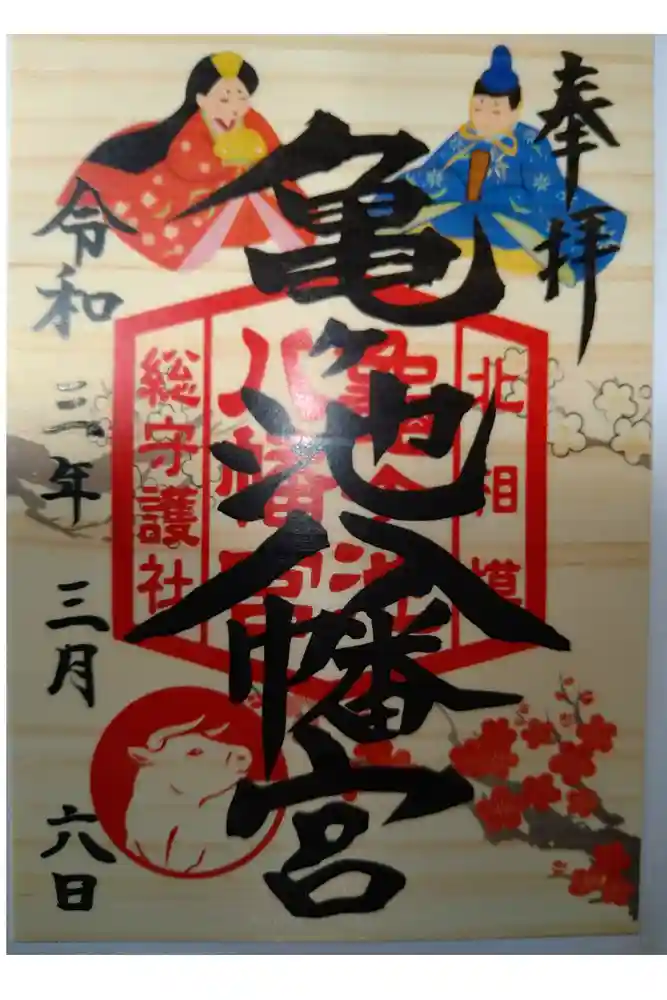 奉拝
亀ヶ池八幡宮
令和三年三月六日
北相模
亀ヶ池
八幡宮
総守護社